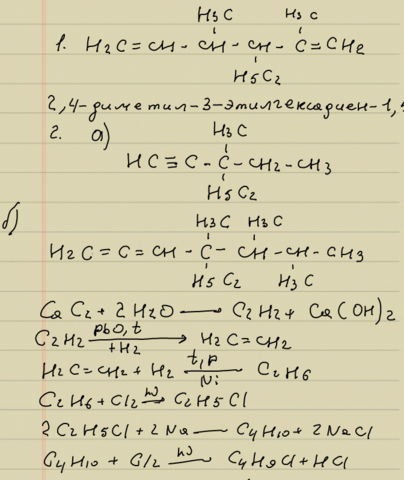 H3C H3C
1. H2C=CH-CH-CH-C=CH2
H5C2
2,4-диметил-3-этилгексадиен-1,
2. а)
H3C
HC≡C-C-CH2-CH3
H5C2
б)
H3C H3C
H2C=C=CH-C-CH-CH-CH3
H5C2 H3C
CaC2+2H2O→C2H2+Ca(OH)2
C2H2 PbO,t/+H2→ H2C=CH2
H2C=CH2+H2 t,p/Ni C2H6
C2H6+Cl2 hν→ C2H5Cl
2C2H5Cl+2Na—C4H10+2NaCl
C4H10+Cl2 hν— C4H9Cl+HCl